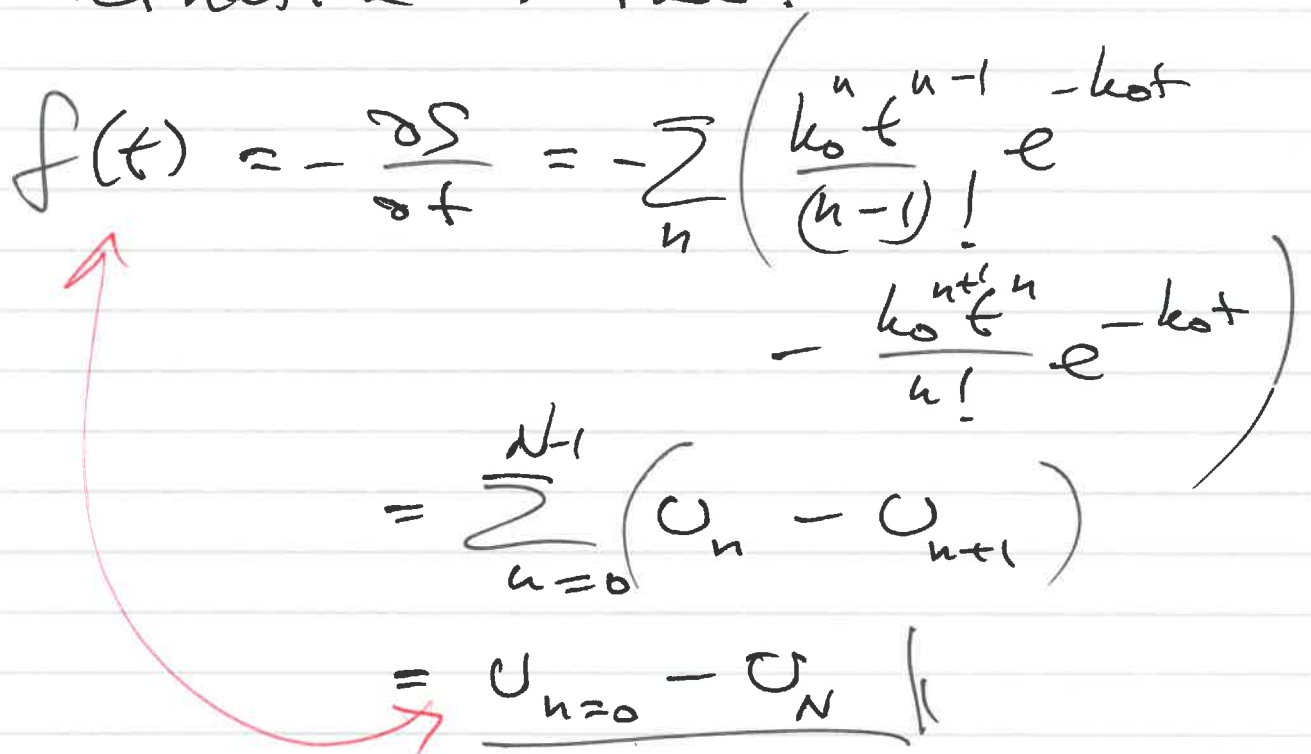 f(t) = - ∂S/∂t = - Σ_n ( k₀^n t^{n-1} / (n-1)! e^{-k₀t}
- k₀^{n+1} t^n / n! e^{-k₀t} )
= Σ_{n=0}^{N-1} ( U_n - U_{n+1} )
= U_{n=0} - U_N